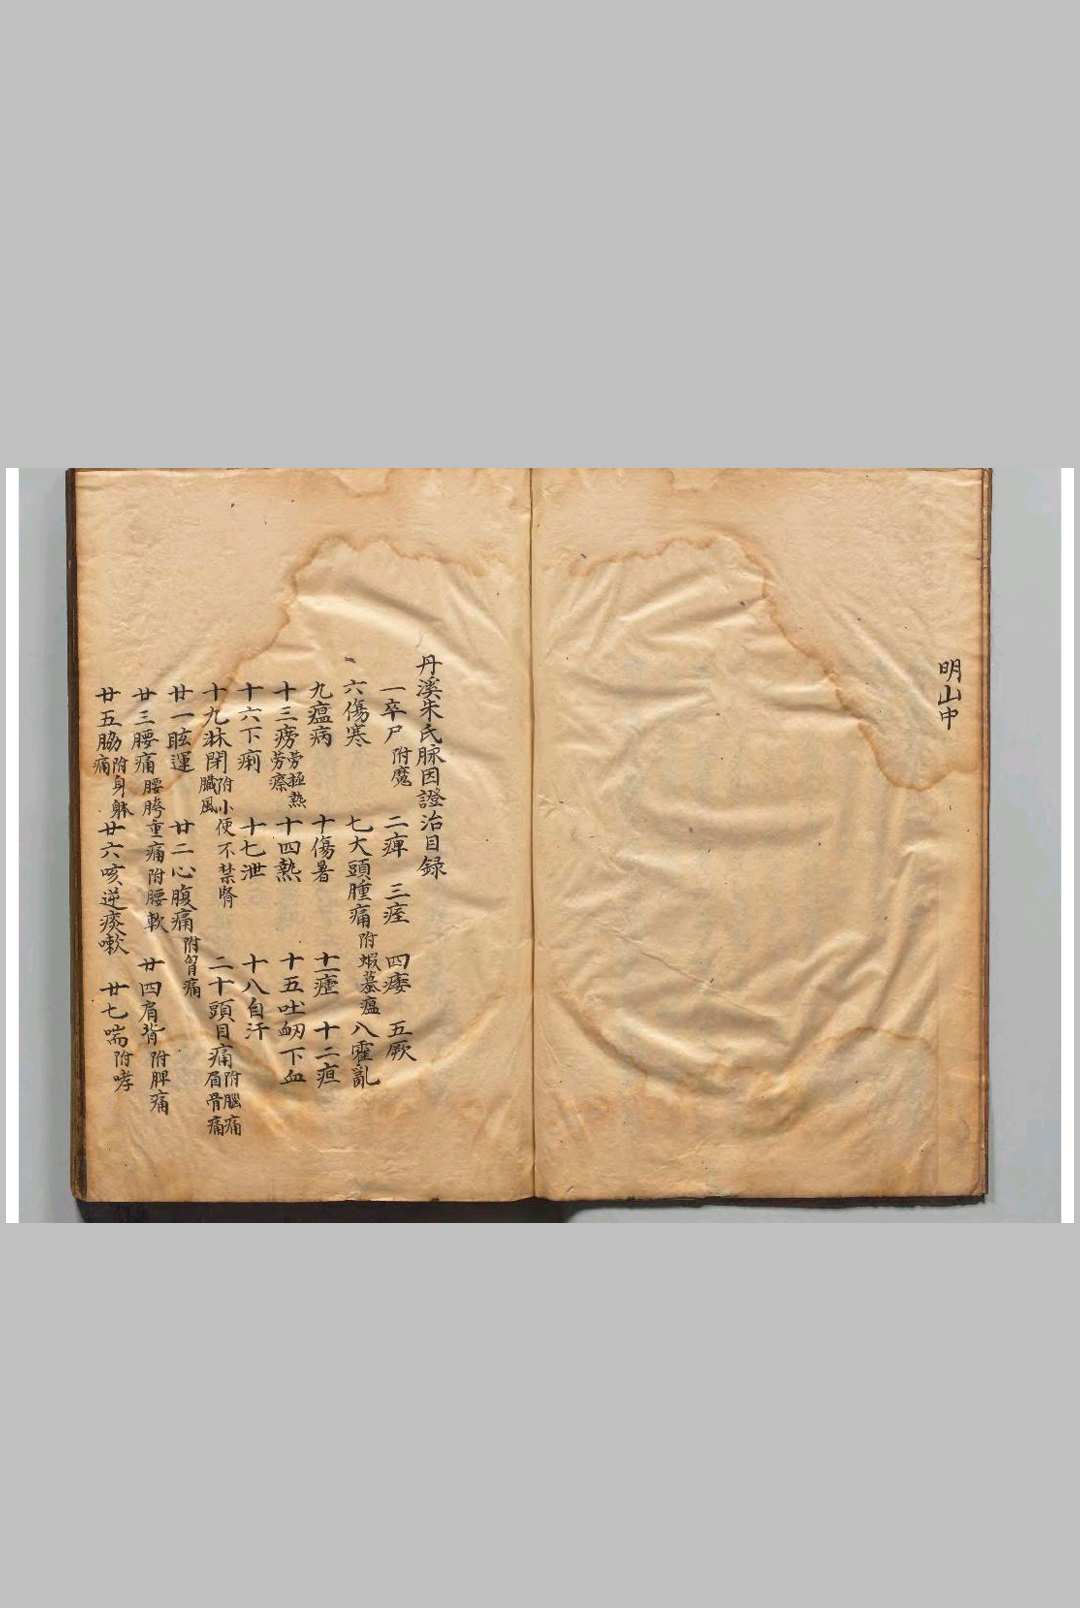 明山中
丹溪朱氏脉因證治目録
一卒尸附魔 二痺 三痓 四痿 五厥
六傷寒 七大頭腫痛附蝦蟇瘟 八霍亂
九瘟病 十傷暑 十一瘧 十二疸
十三癆勞極熱勞瘵 十四熱 十五吐衂下血
十六下痢 十七泄 十八自汗
十九淋閉附小便不禁腎臟風 二十頭目痛附腦痛眉骨痛
廿一眩運 廿二心腹痛附胃痛
廿三腰痛腰胯重痛附腰軟 廿四肩背附脾痛
廿五脇痛附身躰 廿六咳逆痰嗽 廿七喘附哮